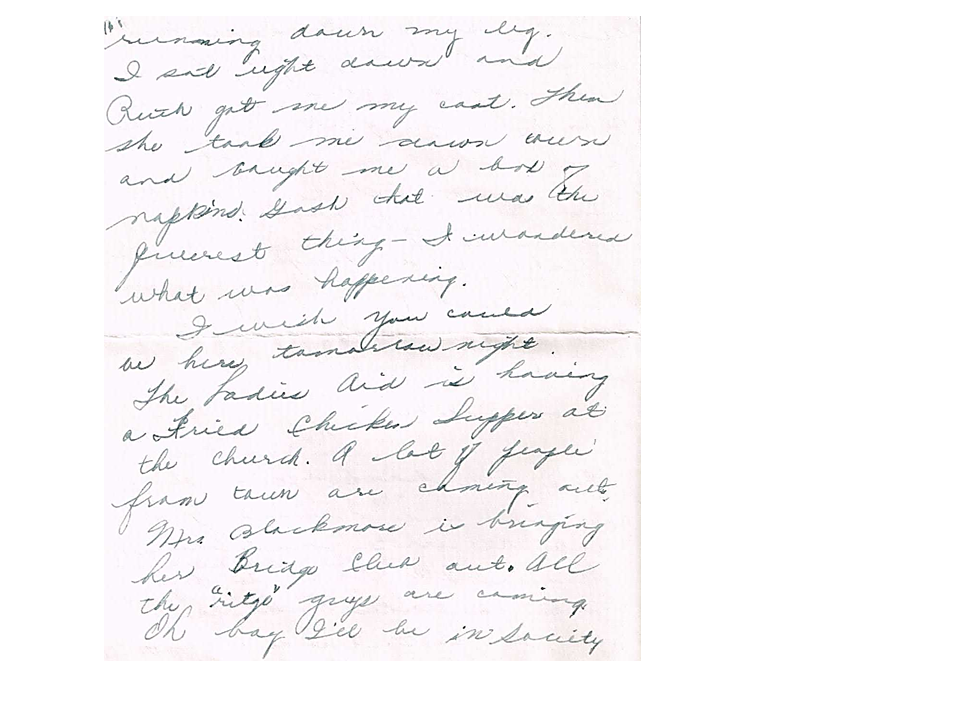 running down my leg.
I sat right down and
Ruth got me my coat. Then
she took me down town
and bought me a box of
napkins. Gosh that was the
queerest thing - I wondered
what was happening.
I wish you could
be here tomorrow night.
The Ladies Aid is having
a Fried Chicken Supper at
the church. A lot of people
from town are coming out.
Mrs Blackmore is bringing
her Bridge Club out. All
the "ritzy" guys are coming.
Oh boy I'll be in Society